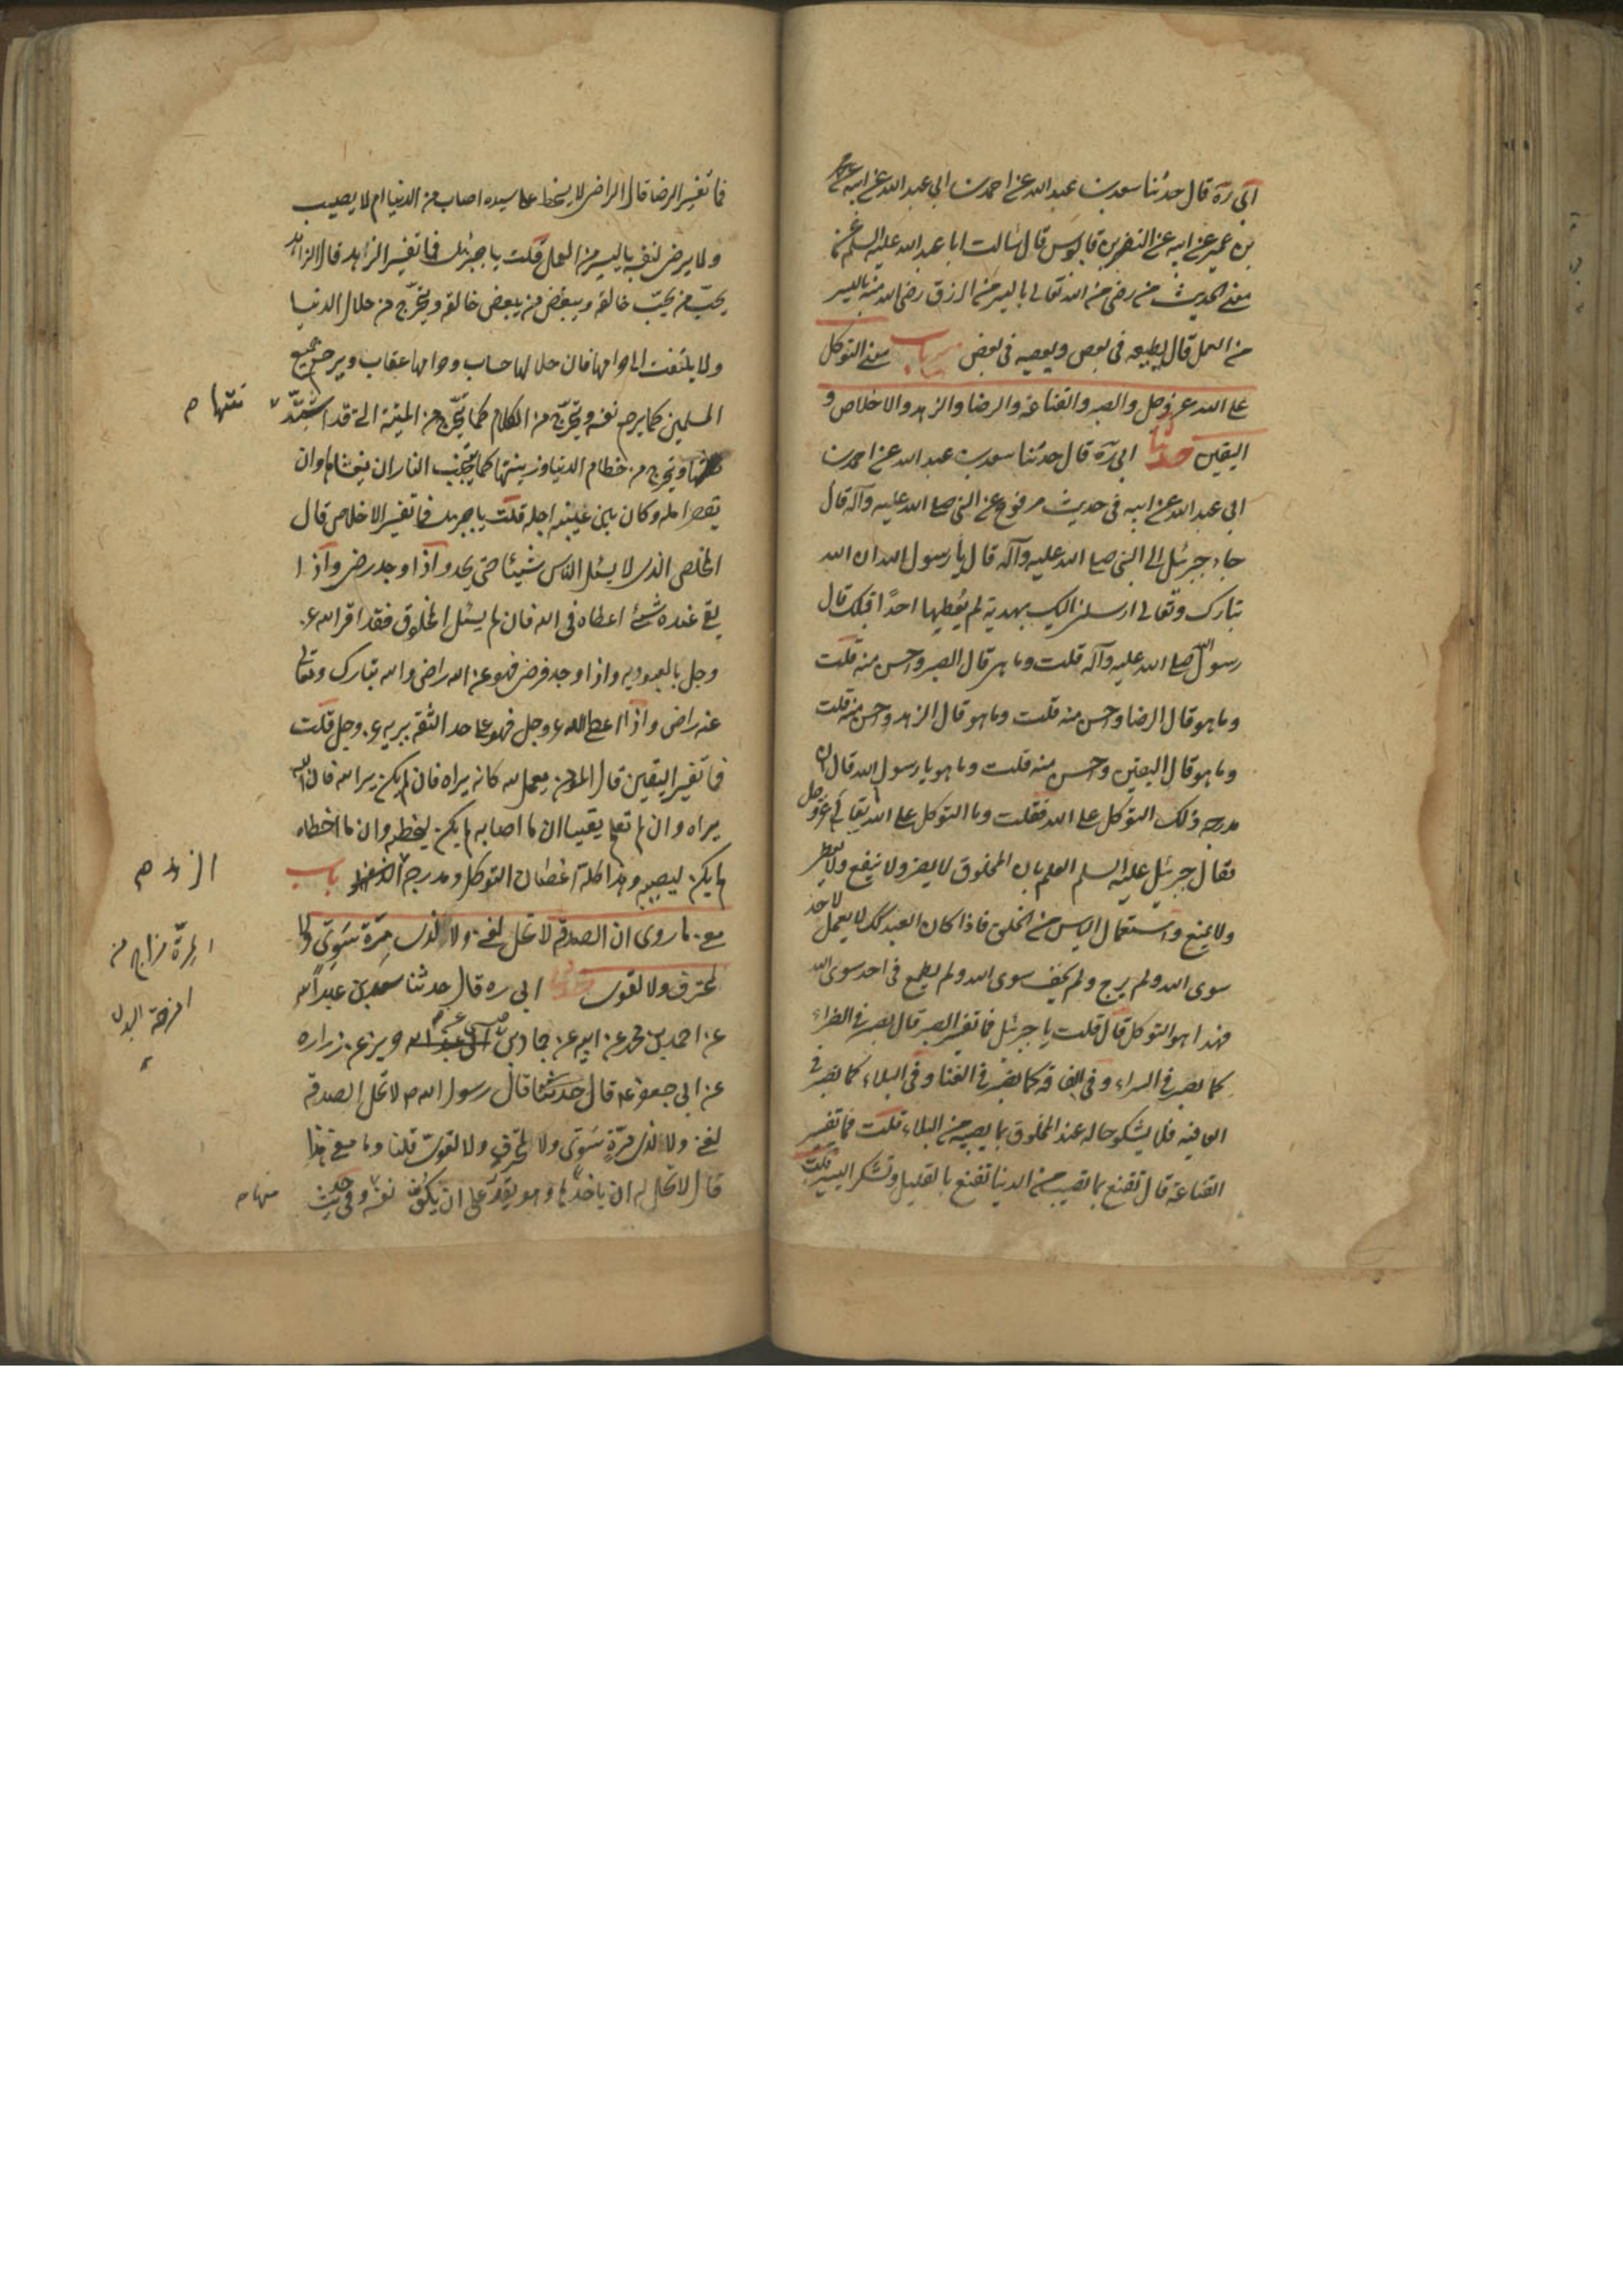 ابى ره قال حدثنا سعد بن عبد الله عن احمد بن ابى عبد الله عن ابيه عن محمد
بن عمير عن ابيه عن النضر بن قابوس قال سالت ابا عبد الله عليه السلم عن
معنى الحديث من رضى من الله تعالى باليسير من الرزق رضى الله منه باليسير
من العمل قال يطيعه فى بعض ويعصيه فى بعض باب معنى التوكل
على الله عز وجل والصبر والقناعة والرضا والزهد والاخلاص و
اليقين حدثنا ابى ره قال حدثنا سعد بن عبد الله عن احمد بن
ابى عبد الله عن ابيه فى حديث مرفوع عن النبى صلى الله عليه وآله قال
جاء جبرئيل الى النبى صلى الله عليه وآله قال يا رسول الله ان الله
تبارك وتعالى ارسلنى اليك بهدية لم يُعطِها احدًا قبلك قال
رسول الله صلى الله عليه وآله قلت وما هى قال الصبر واحسن منه قلت
وما هو قال الرضا واحسن منه قلت وما هو قال الزهد واحسن منه قلت
وما هو قال اليقين واحسن منه قلت وما هو يا رسول الله قال ان
مدرجه ذلك التوكل على الله فقلت وما التوكل على الله تعالى عز وجل
فقال جبرئيل عليه السلم العلم بان المخلوق لا يضر ولا ينفع ولا يعطى
ولا يمنع واستعمال الياس من الخلق فاذا كان العبد كك لا يعمل لاحد
سوى الله ولم يرج ولم يخف سوى الله ولم يطمع فى احد سوى الله
فهذا هو التوكل قال قلت يا جبرئيل فما تفسير الصبر قال يصبر فى الضراء
كما يصبر فى السراء وفى الفاقة كما يصبر فى الغنا وفى البلاء كما يصبر فى
العافيه فلا يشكو حاله عند المخلوق بما يصيبه من البلاء قلت فما تفسير
القناعة قال تقنع بما تصيب من الدنيا تقنع بالقليل وتشكر اليسير قلت
فما تفسير الرضا قال الراضى لا يسخط على سيده اصاب من الدنيا ام لا يصيب
ولا يرضى لنفسه باليسير من العمل قلت يا جبرئيل فما تفسير الزاهد قال الزاهد
يحبّ من يحبّ خالقه ويبغض من يبغض خالقه ويتحرّج من حلال الدنيا
ولا يلتفت الى حرامها فان حلالها حساب وحرامها عقاب ويرحم جميع
المسلمين كما يرحم نفسه ويتحرّج من الكلام كما يتحرّج من الميتة التى قد اشتدّ
نتنها م
ويتحرج من حطام الدنيا وزينتها كما يتجنب النار ان يغشاها وان
يقصر امله وكان بين عينيه اجله قلت يا جبرئيل فما تفسير الاخلاص قال
المخلص الذى لا يسئل الناس شيئا حتى يجد واذا وجد رضى واذا
بقى عنده شئ اعطاه فى الله فان لم يسئل المخلوق فقد اقر الله عز
وجل بالعبوديه واذا وجد فرضى فهو عن الله راضى والله تبارك وتعالى
عنه راضى واذا اعطى لله عز وجل فهو على حد الثقه بربه عز وجل قلت
فما تفسير اليقين قال المؤمن يعمل لله كانه يراه فان لم يكن يرى الله فان الله
يراه وان لم تعلم يقينا ان ما اصابه لم يكن ليخطيه وان ما اخطاه
لم يكن ليصيبه وهذا كله اغصان التوكل ومدرجه باب
الزهد م
معنى ما روى ان الصدقه لا تحل لغنى ولا لذى مِرّة سَوِىّ ولا
لمحترف ولا لقوى حدثنا ابى ره قال حدثنا سعد بن عبد الله
المِرّة مزاج من
امزجة البدن
عن احمد بن محمد عن ابيه عن حماد بن عيسى عن حريز عن زراره
عن ابى جعفر ع قال حدثنا قال رسول الله ص لا تحل الصدقه
لغنى ولا لذى مِرّةٍ سَوِىّ ولا لمحترفٍ ولا لقوىّ قلنا وما معنى هذا
قال لا تحل له ان ياخذها وهو يقدر على ان يكفّ نفسه وفى حديث
عنها م